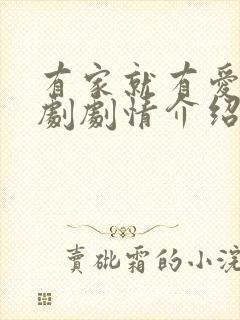 有家就有爱
劇劇情介绍
賣砒霜的小浣